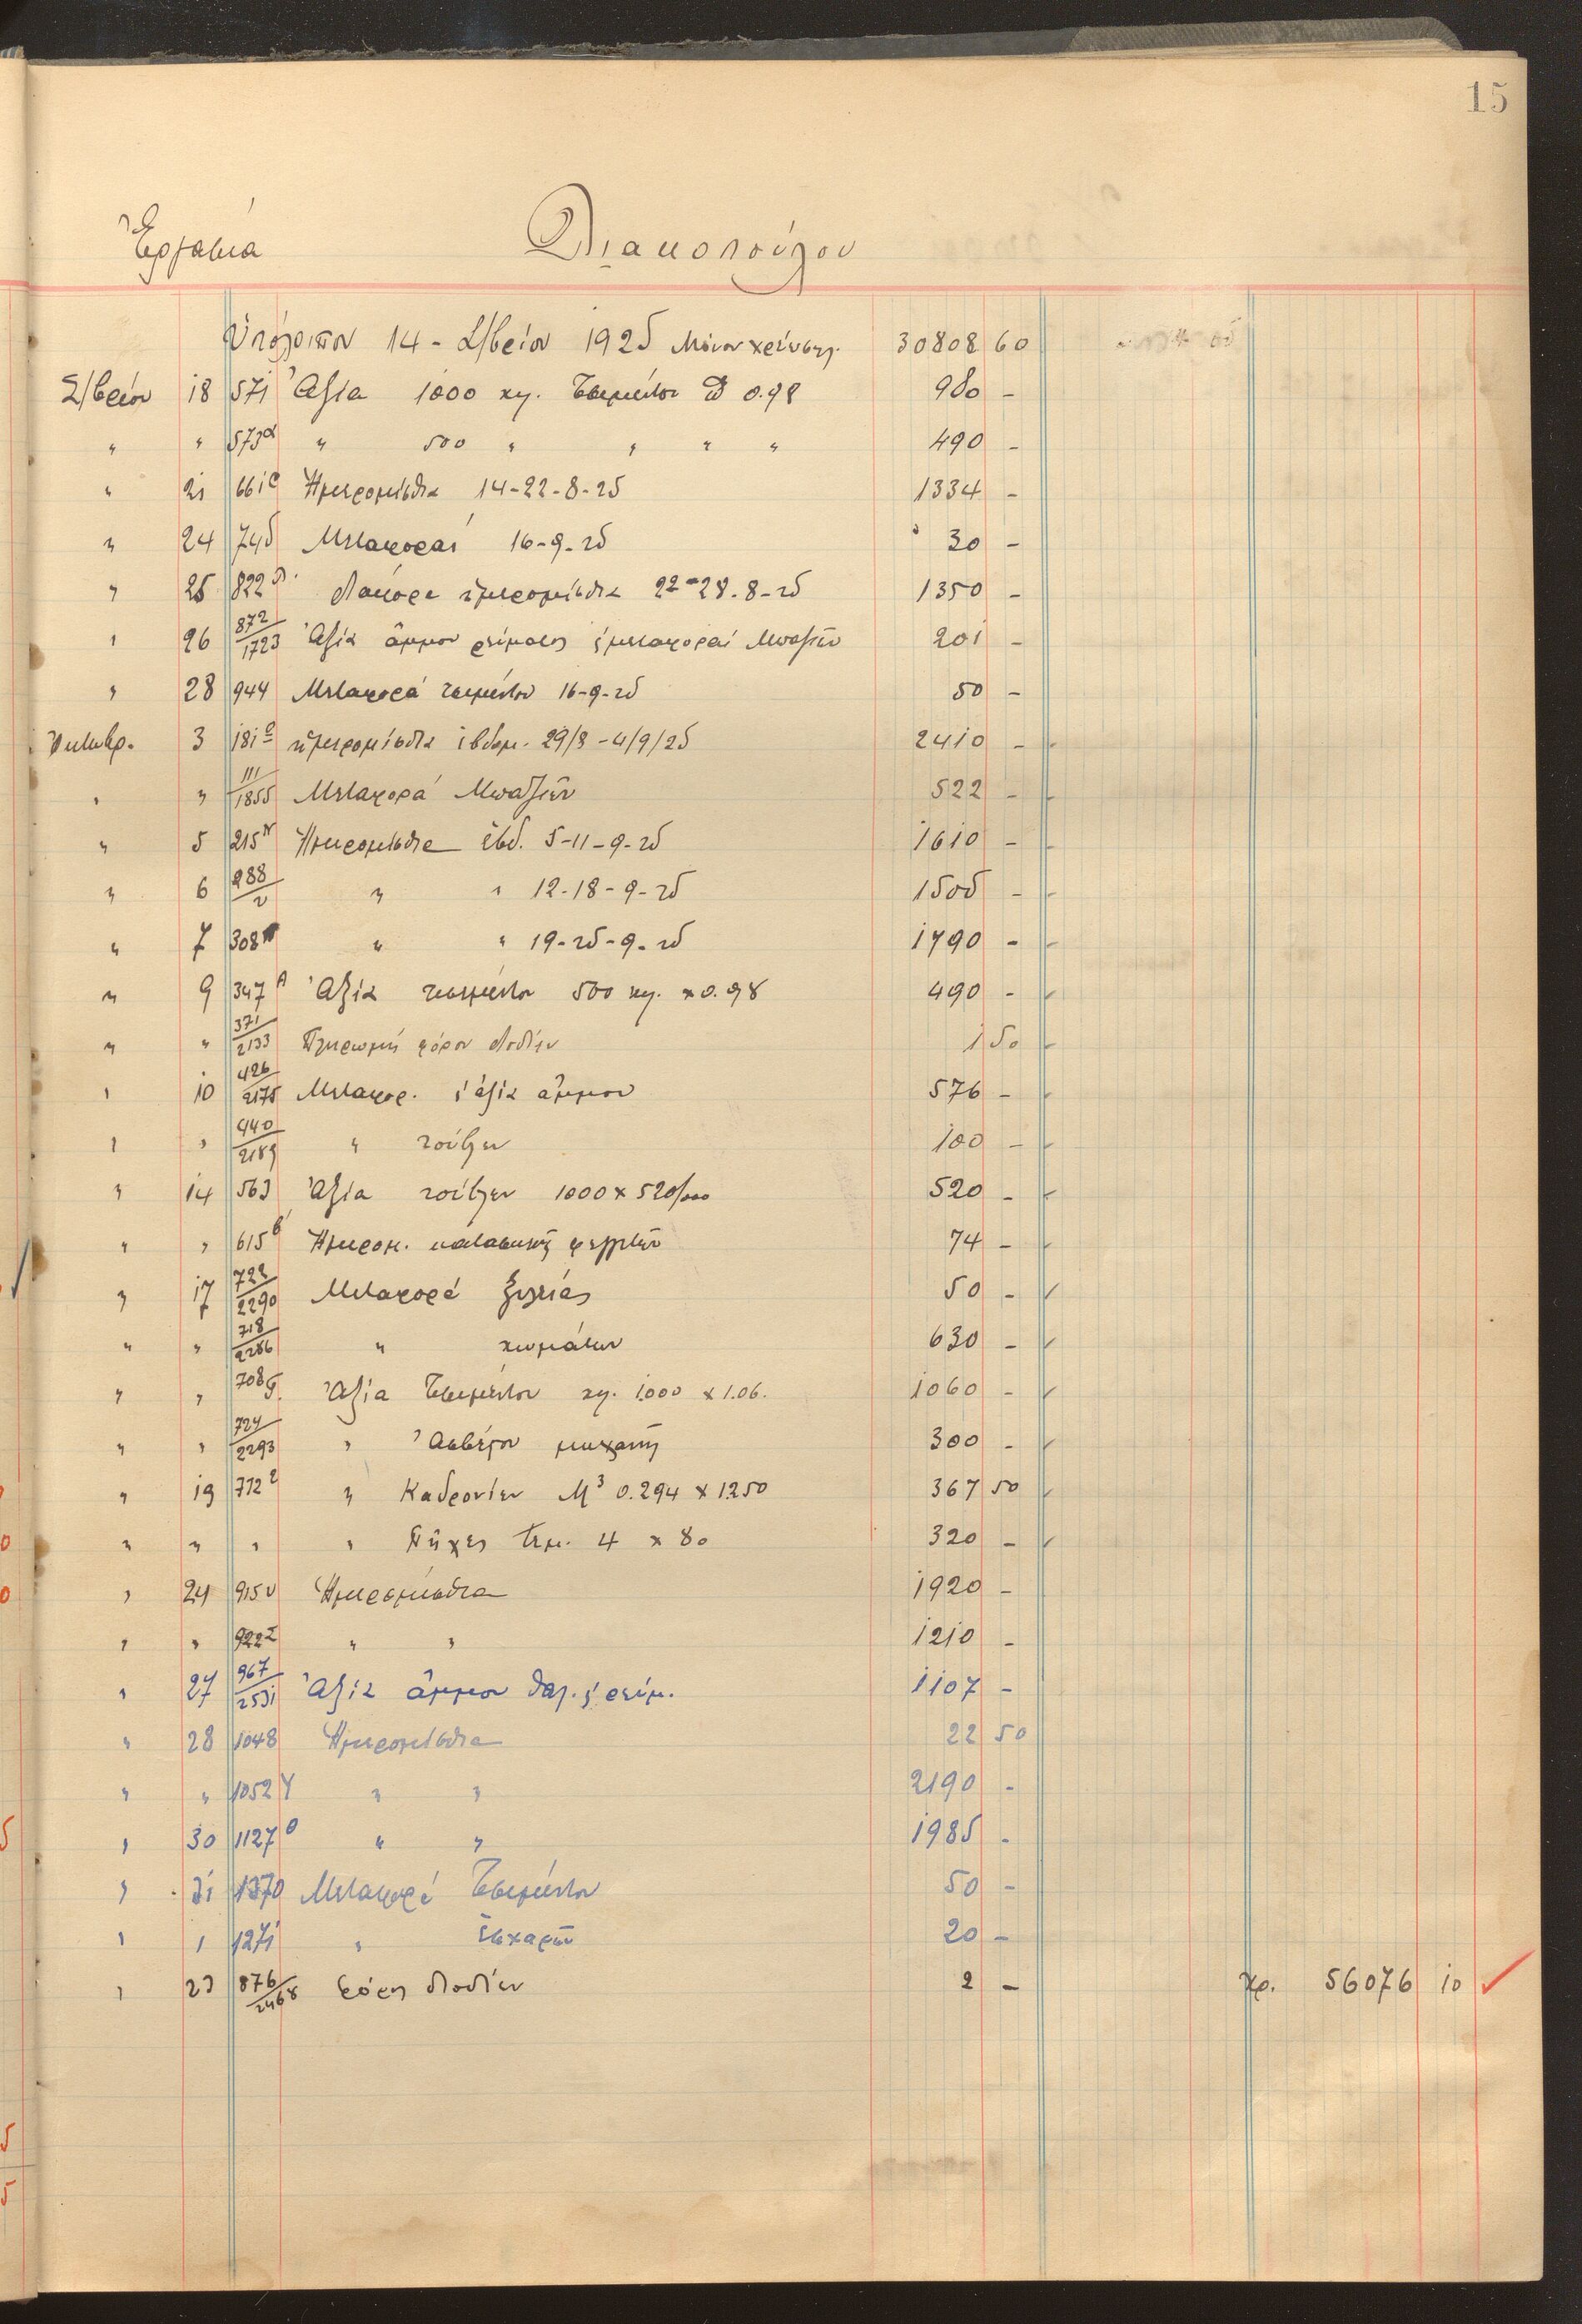 15
Ἐργασία Διακοπούλου
Ὑπόλοιπον 14 - Σ/βρίου 1925 Μόνον χρέωσης. 30808 60
Σ/βρίου 18 571 Ἀξία 1000 χγ. Τσιμέντου 0.98 980 -
" " 573α " 500 " " " " 490 -
" 21 661 Ἡμερομίσθια 14-22-8-25 1334 -
" 24 745 Μεταφοραί 16-9-25 30 -
" 25 822 ἡμερομίσθια 22-28-8-25 1350 -
" 26 872/1723 Ἀξία ἄμμου ρεύματος & μεταφοραί Μπαζῶν 201 -
" 28 944 Μεταφορά τσιμέντου 16-9-25 50 -
Ὀκτωβρ. 3 181 ἡμερομίσθια ἑβδομ. 29/8-4/9/25 2410 -
" " 111/1855 Μεταφορά Μπαζῶν 522 -
" 5 215 Ἡμερομίσθια ἑβδ. 5-11-9-25 1610 -
" 6 288/υ " " 12-18-9-25 1505 -
" 7 308 " " 19-25-9-25 1790 -
" 9 347 Α Ἀξία τσιμέντου 500 χγ. x 0.98 490 -
" " 371/2133 Πληρωμή φόρου διοδίων 1 50
" 10 426/2175 Μεταφορ. & ἀξία ἄμμου 576 -
" " 440/2189 " τούβλων 100 -
" 14 563 Ἀξία τούβλων 1000 x 520/000 520 -
" " 615β Ἡμερομ. κατασκευῆς φεγγιτῶν 74 -
" 17 722/2290 Μεταφορά ξυλείας 50 -
" " 718/2286 " χωμάτων 630 -
" " 708 Ἀξία Τσιμέντου χγ. 1000 x 1.06. 1060 -
" " 724/2293 " Ἀσβέστου 300 -
" 19 772 " Καδρονίων Μ3 0.294 x 1250 367 50
" " " " Πῆχες τεμ. 4 x 80 320 -
" 24 915υ Ἡμερομίσθια 1920 -
" " 922Σ " " 1210 -
" 27 967/2531 Ἀξία ἄμμου θαλ. & ρεύμ. 1107 -
" 28 1048 Ἡμερομίσθια 22 50
" " 1052 Υ " " 2190 -
" 30 1127θ " " 1985 -
" 31 1370 Μεταφορά Τσιμέντου 50 -
" 1 1271 " Ἐσχαρῶν 20 -
" 23 876/2468 Φόρος διοδίων 2 - χρ. 56076 10